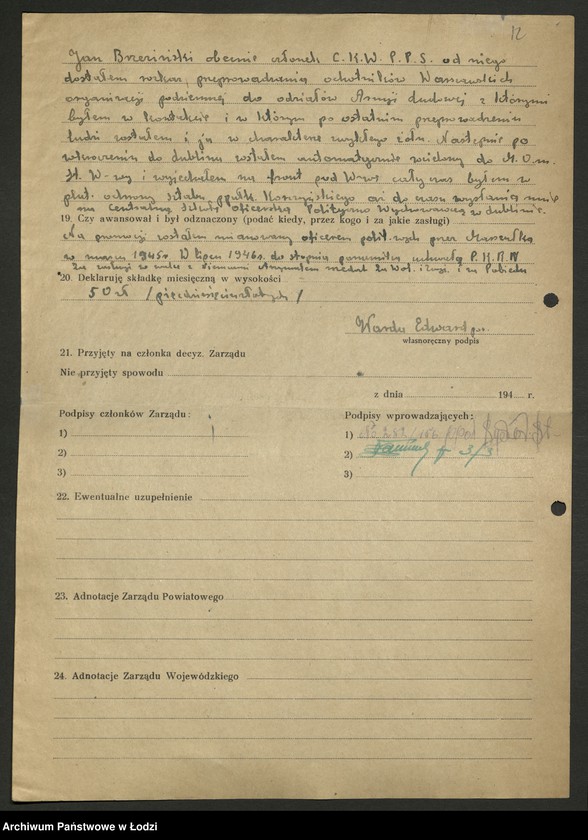 12
Jan Brzeziński obecnie członek C.K.W. P.P.S. od niego
dostałem rozkaz przeprowadzania ochotników Warszawskich
organizacji podziemnej do odziałów Armji Ludowej z którymi
byłem w kontakcie i w którym po ostatnim przeprowadzeniu
ludzi zostałem i ja w charakterze zwykłego żołn. Następnie po
wkroczeniu do Lublina zostałem automatycznie wcielony do M.O.
St. W-wy i wyjechałem na front pod W-wę cały czas byłem w
plut. ochrony sztabu ppułk. Konczyńskiego aż do czasu wysłania mnie
na Centralną Szkołę Oficerską Polityczno Wychowawczą w Lublinie.
19. Czy awansował i był odznaczony (podać kiedy, przez kogo i za jakie zasługi)
Na promocji zostałem mianowany oficerem polit. wych. przez Marszałka
w marcu 1945r. W lipcu 1946r. do stopnia porucznika uchwałą P.K.R.N
Za zasługi w walce z Niemcami otrzymałem medal Za Wol. i Zwyc. i za Pobiedu
20. Deklaruję składkę miesięczną w wysokości
50 zł /pięćdziesięciuzłotych/
Warda Edward por.
własnoręczny podpis
21. Przyjęty na członka decyz. Zarządu
Nie przyjęty spowodu
z dnia 194 r.
Podpisy członków Zarządu:
Podpisy wprowadzających:
1)
1)
2)
2) 3/3
3)
3)
22. Ewentualne uzupełnienie
23. Adnotacje Zarządu Powiatowego
24. Adnotacje Zarządu Wojewódzkiego
Archiwum Państwowe w Łodzi